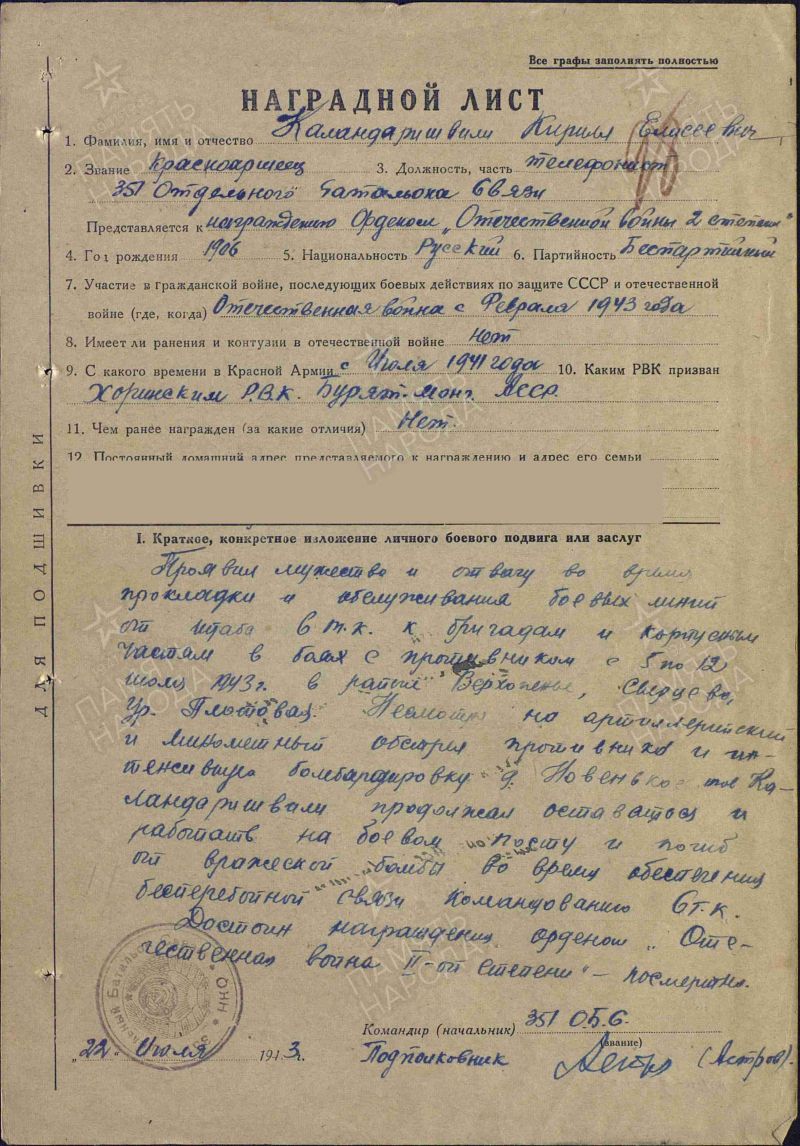 Все графы заполнять полностью
НАГРАДНОЙ ЛИСТ
1. Фамилия, имя и отчество Каландаришвили Кирилл Елисеевич
2. Звание Красноармеец 3. Должность, часть телефонист
351 Отдельного Батальона Связи
Представляется к награждению Орденом „Отечественной войны 2 степени"
4. Год рождения 1906 5. Национальность Русский 6. Партийность Беспартийный
7. Участие в гражданской войне, последующих боевых действиях по защите СССР и отечественной
войне (где, когда) Отечественная война с Февраля 1943 года
8. Имеет ли ранения и контузии в отечественной войне нет
9. С какого времени в Красной Армии с Июля 1941 года 10. Каким РВК призван
Хоринским Р.В.К. Бурят-монг. АССР.
11. Чем ранее награжден (за какие отличия) Нет.
12. Постоянный домашний адрес представляемого к награждению и адрес его семьи
I. Краткое, конкретное изложение личного боевого подвига или заслуг
Проявил мужество и отвагу во время
прокладки и обслуживания боевых линий
от штаба 6 т.к. к бригадам и корпусным
частям в боях с противником с 5 по 12
июля 1943 г. в районе Верхопенье,
Ур. Несмотря на артиллерийский
и минометный обстрел противника и ин-
тенсивную бомбардировку д. Новенькое тов Ка-
ландаришвили продолжал оставаться и
работать на боевом посту и погиб
от вражеской бомбы во время обеспечения
бесперебойной связи Командованию 6 т.к.
Достоин награждения орденом „Оте-
чественная война II-ой степени" – посмертно.
Командир (начальник) 351 О.Б.С.
(звание)
„22" Июля 1943 г. Подполковник (Астров).
ДЛЯ ПОДШИВКИ
ПАМЯТЬ НАРОДА